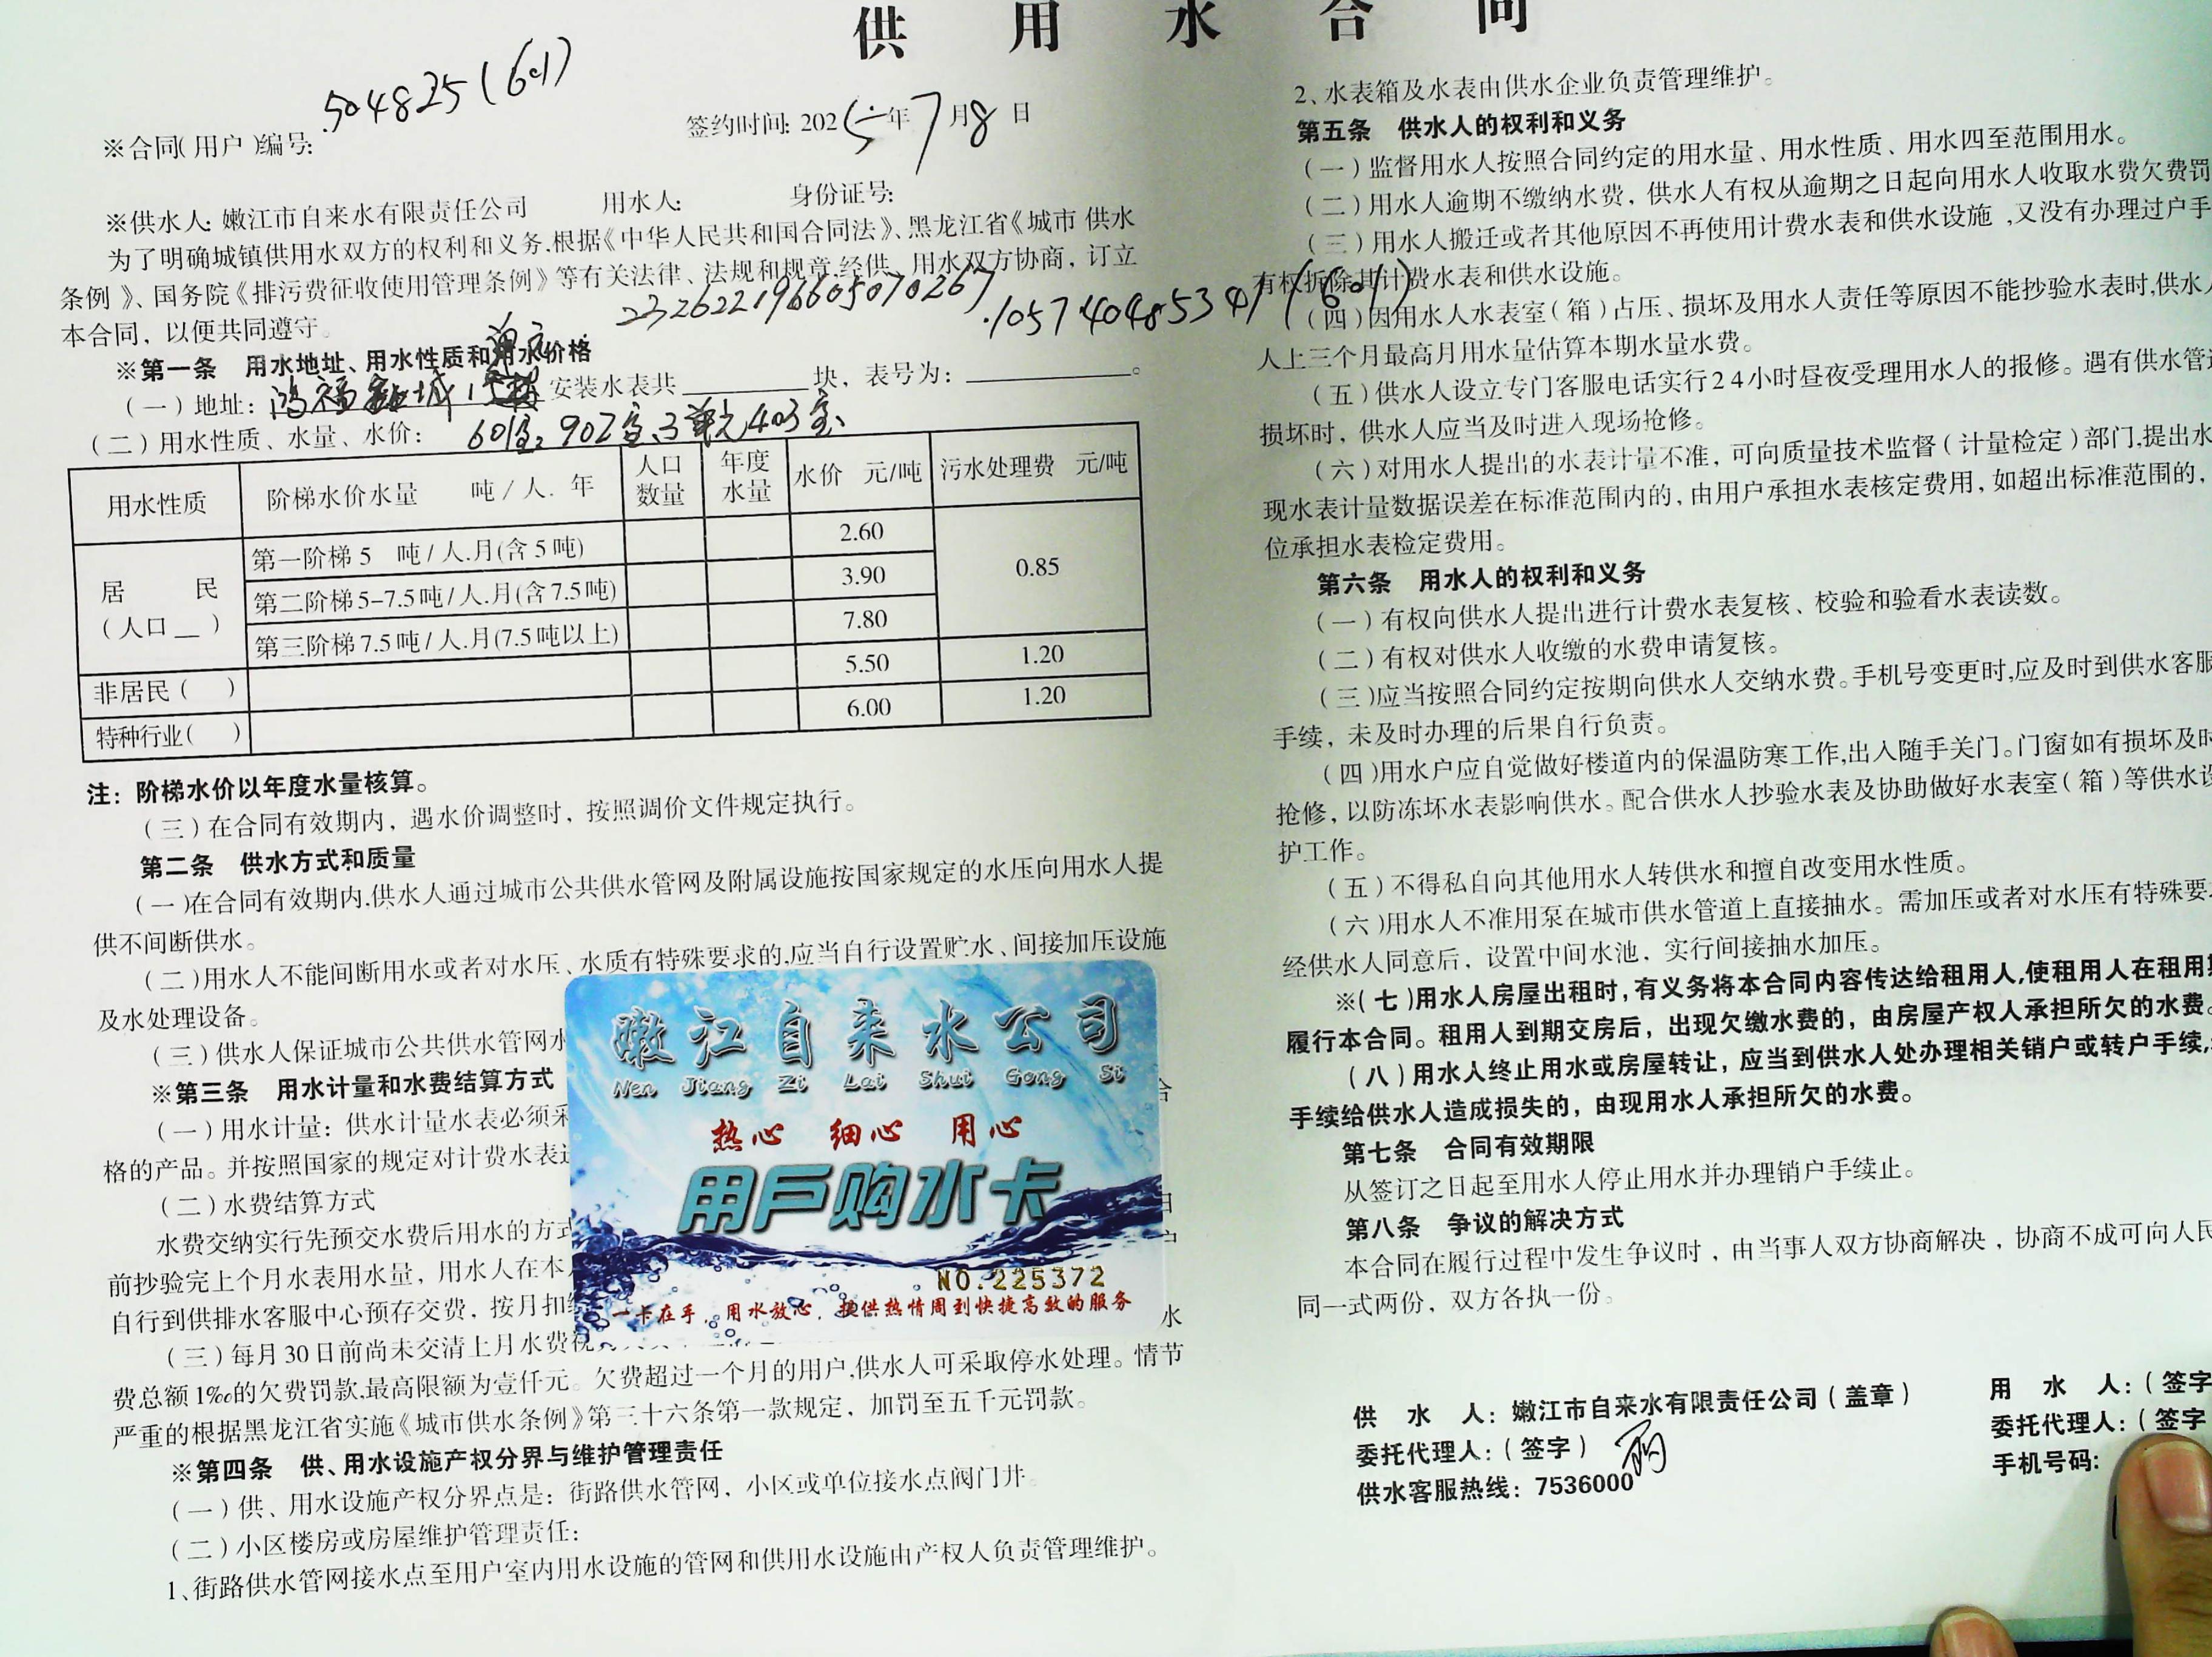 供 用 水 合 同
504825(601)
※合同(用户)编号:
签约时间: 2025年7月8日
※供水人: 嫩江市自来水有限责任公司 用水人: 身份证号:
为了明确城镇供用水双方的权利和义务.根据《中华人民共和国合同法》、黑龙江省《城市 供水
条例 》、国务院《排污费征收使用管理条例》等有关法律、法规和规章.经供、用水双方协商，订立
本合同，以便共同遵守
232622196605070267 .105740485341(601)
※第一条 用水地址、用水性质和用水价格
(一)地址: 鸿福鑫城 安装水表共 块，表号为: 。
(二)用水性质、水量、水价:
601室、902室、3单元403室
用水性质 阶梯水价水量 吨/人.年 人口数量 年度水量 水价 元/吨 污水处理费 元/吨
居 民 (人口 ) 第一阶梯5 吨/人.月(含5吨) 2.60 0.85
第二阶梯5-7.5吨/人.月(含7.5吨) 3.90
第三阶梯7.5吨/人.月(7.5吨以上) 7.80
非居民( ) 5.50 1.20
特种行业( ) 6.00 1.20
注: 阶梯水价以年度水量核算。
(三)在合同有效期内，遇水价调整时，按照调价文件规定执行。
第二条 供水方式和质量
(一)在合同有效期内.供水人通过城市公共供水管网及附属设施按国家规定的水压向用水人提
供不间断供水。
(二)用水人不能间断用水或者对水压、水质有特殊要求的,应当自行设置贮水、间接加压设施
及水处理设备。
(三)供水人保证城市公共供水管网水
※第三条 用水计量和水费结算方式
(一)用水计量: 供水计量水表必须采
格的产品。并按照国家的规定对计费水表
(二)水费结算方式
水费交纳实行先预交水费后用水的方式
前抄验完上个月水表用水量，用水人在本
自行到供排水客服中心预存交费，按月扣
(三)每月30日前尚未交清上月水费 水
费总额1‰的欠费罚款,最高限额为壹仟元。欠费超过一个月的用户,供水人可采取停水处理。情节
严重的根据黑龙江省实施《城市供水条例》第三十六条第一款规定，加罚至五千元罚款。
※第四条 供、用水设施产权分界与维护管理责任
(一)供、用水设施产权分界点是: 街路供水管网，小区或单位接水点阀门井
(二)小区楼房或房屋维护管理责任:
1、街路供水管网接水点至用户室内用水设施的管网和供用水设施由产权人负责管理维护。
嫩江自来水公司
Nen Jiang Zi Lai Shui Gong Si
热心 细心 用心
用户购水卡
NO.225372
一卡在手，用水放心，提供热情周到快捷高效的服务
2、水表箱及水表由供水企业负责管理维护。
第五条 供水人的权利和义务
(一)监督用水人按照合同约定的用水量、用水性质、用水四至范围用水。
(二)用水人逾期不缴纳水费，供水人有权从逾期之日起向用水人收取水费欠费罚
(三)用水人搬迁或者其他原因不再使用计费水表和供水设施,又没有办理过户手
有权拆除其计费水表和供水设施。
(四)因用水人水表室(箱)占压、损坏及用水人责任等原因不能抄验水表时,供水人
人上三个月最高月用水量估算本期水量水费。
(五)供水人设立专门客服电话实行24小时昼夜受理用水人的报修。遇有供水管道
损坏时，供水人应当及时进入现场抢修。
(六)对用水人提出的水表计量不准，可向质量技术监督(计量检定)部门,提出水
现水表计量数据误差在标准范围内的，由用户承担水表核定费用，如超出标准范围的，
位承担水表检定费用。
第六条 用水人的权利和义务
(一)有权向供水人提出进行计费水表复核、校验和验看水表读数。
(二)有权对供水人收缴的水费申请复核。
(三)应当按照合同约定按期向供水人交纳水费。手机号变更时,应及时到供水客服
手续，未及时办理的后果自行负责。
(四)用水户应自觉做好楼道内的保温防寒工作,出入随手关门。门窗如有损坏及时
抢修，以防冻坏水表影响供水。配合供水人抄验水表及协助做好水表室(箱)等供水设
护工作。
(五)不得私自向其他用水人转供水和擅自改变用水性质。
(六)用水人不准用泵在城市供水管道上直接抽水。需加压或者对水压有特殊要
经供水人同意后，设置中间水池，实行间接抽水加压。
※(七)用水人房屋出租时,有义务将本合同内容传达给租用人,使租用人在租用
履行本合同。租用人到期交房后，出现欠缴水费的，由房屋产权人承担所欠的水费。
(八)用水人终止用水或房屋转让，应当到供水人处办理相关销户或转户手续,
手续给供水人造成损失的，由现用水人承担所欠的水费。
第七条 合同有效期限
从签订之日起至用水人停止用水并办理销户手续止。
第八条 争议的解决方式
本合同在履行过程中发生争议时，由当事人双方协商解决，协商不成可向人民
同一式两份，双方各执一份。
供 水 人: 嫩江市自来水有限责任公司(盖章)
委托代理人:(签字)
供水客服热线: 7536000
用 水 人:(签字
委托代理人:(签字
手机号码: